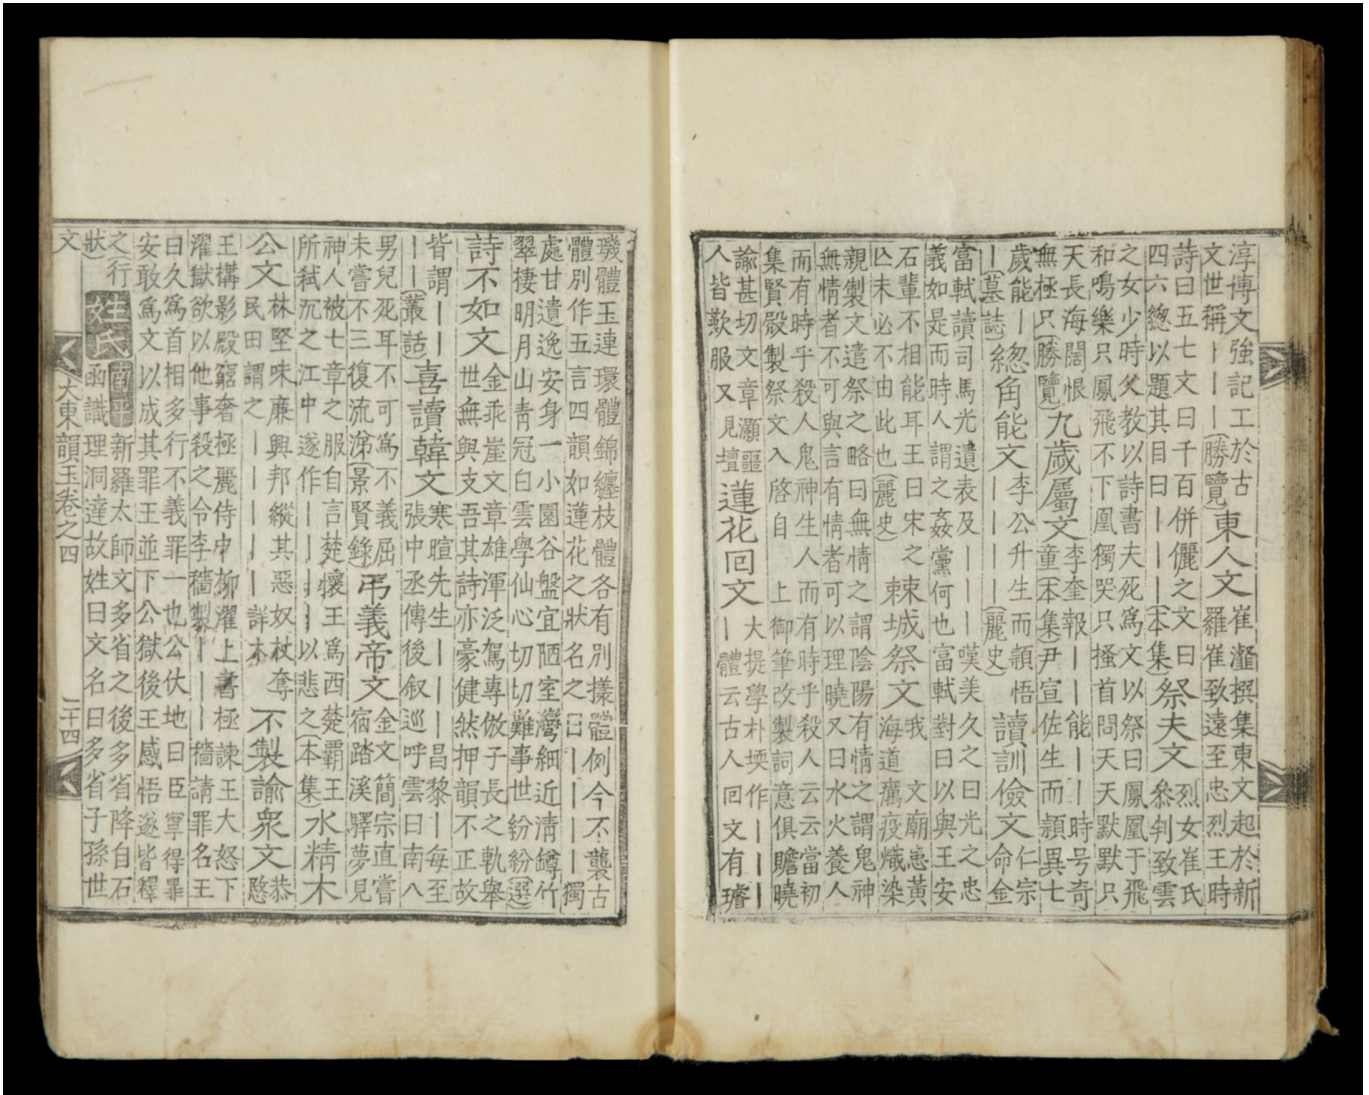 淳博文強記工於古
文世稱｜｜｜(勝覽)
東人文
崔瀣撰集東文起於新
羅崔致遠至忠烈王時
詩曰五七文曰千百併儷之文曰
四六總以題其目曰｜｜｜(本集)
祭夫文
烈女崔氏
叅判致雲
之女少時父教以詩書夫死爲文以祭曰鳳凰于飛
和鳴樂只鳳飛不下凰獨哭只搔首問天天默默只
天長海闊恨
無極只(勝覽)
九歲屬文
李奎報｜｜能｜｜時号奇
童(本集)尹宣佐生而頴異七
歲能｜
｜(墓誌)
緫角能文
李公升生而頴悟
｜｜｜｜(麗史)
讀訓儉文
仁宗
命金
富軾讀司馬光遺表及｜｜｜｜嘆美久之曰光之忠
義如是而時人謂之姦黨何也富軾對曰以與王安
石輩不相能耳王曰宋之
亾未必不由此也(麗史)
棘城祭文
我 文廟恚黃
海道癘疫熾染
親製文遣祭之略曰無情之謂陰陽有情之謂鬼神
無情者不可與言有情者可以理曉又曰水火養人
而有時乎殺人鬼神生人而有時乎殺人云云當初
集賢殿製祭文入啓自 上御筆改製詞意俱贍曉
諭甚切文章灝噩
人皆歎服又見壇
蓮花回文
大提學朴堧作｜｜｜｜
｜體云古人回文有璿
璣體玉連環體錦纏枝體各有別㨾體例今不襲古
體別作五言四韻如蓮花之狀名之曰｜｜｜｜獨
處甘遺逸安身一小園谷盤宜陋室灣細近清罇竹
翠棲明月山靑冠白雲學仙心切切難事世紛紛(選)
詩不如文
金乖崖文章雄渾泛駕專倣子長之軌擧
世無與支吾其詩亦豪健然押韻不正故
皆謂｜｜
｜｜(叢話)
喜讀韓文
寒暄先生｜｜昌黎｜每至
張中丞傳後叙巡呼雲曰南八
男兒死耳不可爲不義屈
未嘗不三復流涕(景賢錄)
弔義帝文
金文簡宗直嘗
宿踏溪驛夢見
神人被七章之服自言楚懷王爲西楚覇王
所弑沉之江中遂作｜｜｜｜以悲之(本集)
水精木
公文
林堅味廉興邦縱其惡奴杖奪
民田謂之｜｜｜｜｜詳木
不製諭衆文
恭
愍
王構影殿窮奢極麗侍中柳濯上書極諫王大怒下
濯獄欲以他事殺之令李穡製｜｜｜穡請罪名王
曰久爲首相多行不義罪一也公伏地曰臣寧得罪
安敢爲文以成其罪王並下公獄後王感悟遂皆釋
之(行
狀)
姓氏
南平
新羅太師文多省之後多省降自石
函識理洞達故姓曰文名曰多省子孫世
文
大東韻玉卷之四
二十四